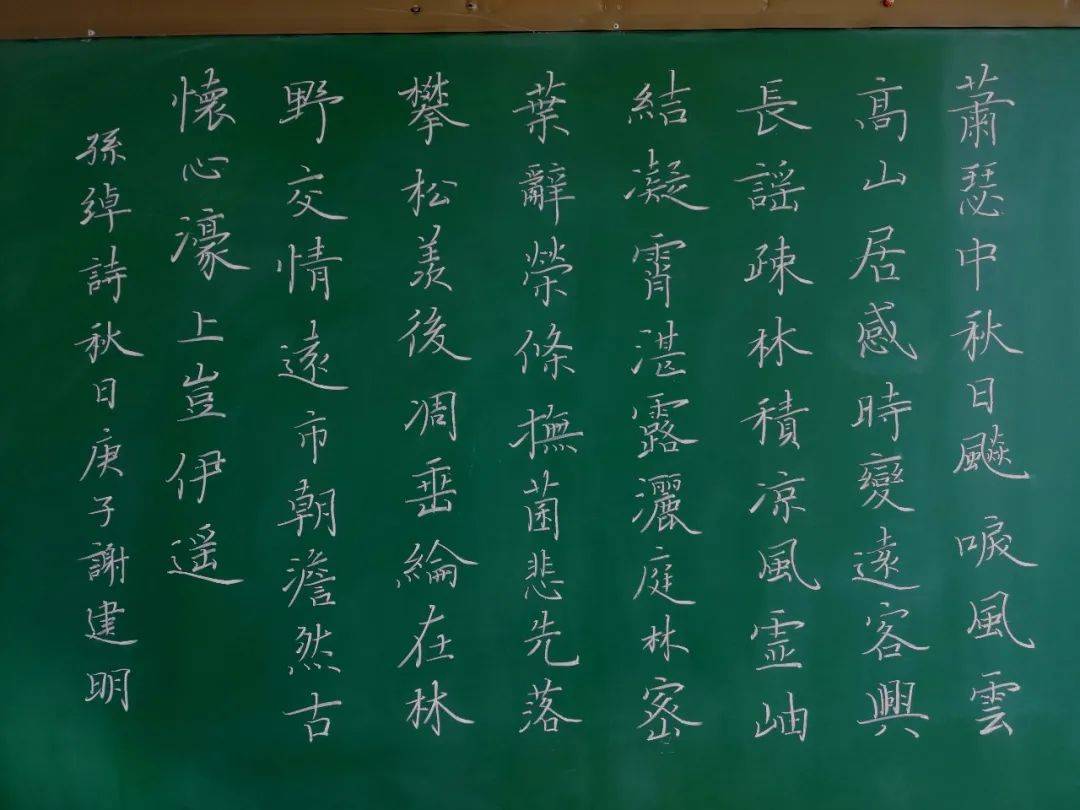 蕭瑟中秋日飈唳風雲
髙山居感時變遠客興
長謡疎林積凉風霊岫
結凝霄湛露灑庭林密
葉辭榮條撫菌悲先落
攀松羨後凋垂綸在林
野交情遠市朝澹然古
懷心濠上豈伊遥
孫綽詩秋日庚子謝建明